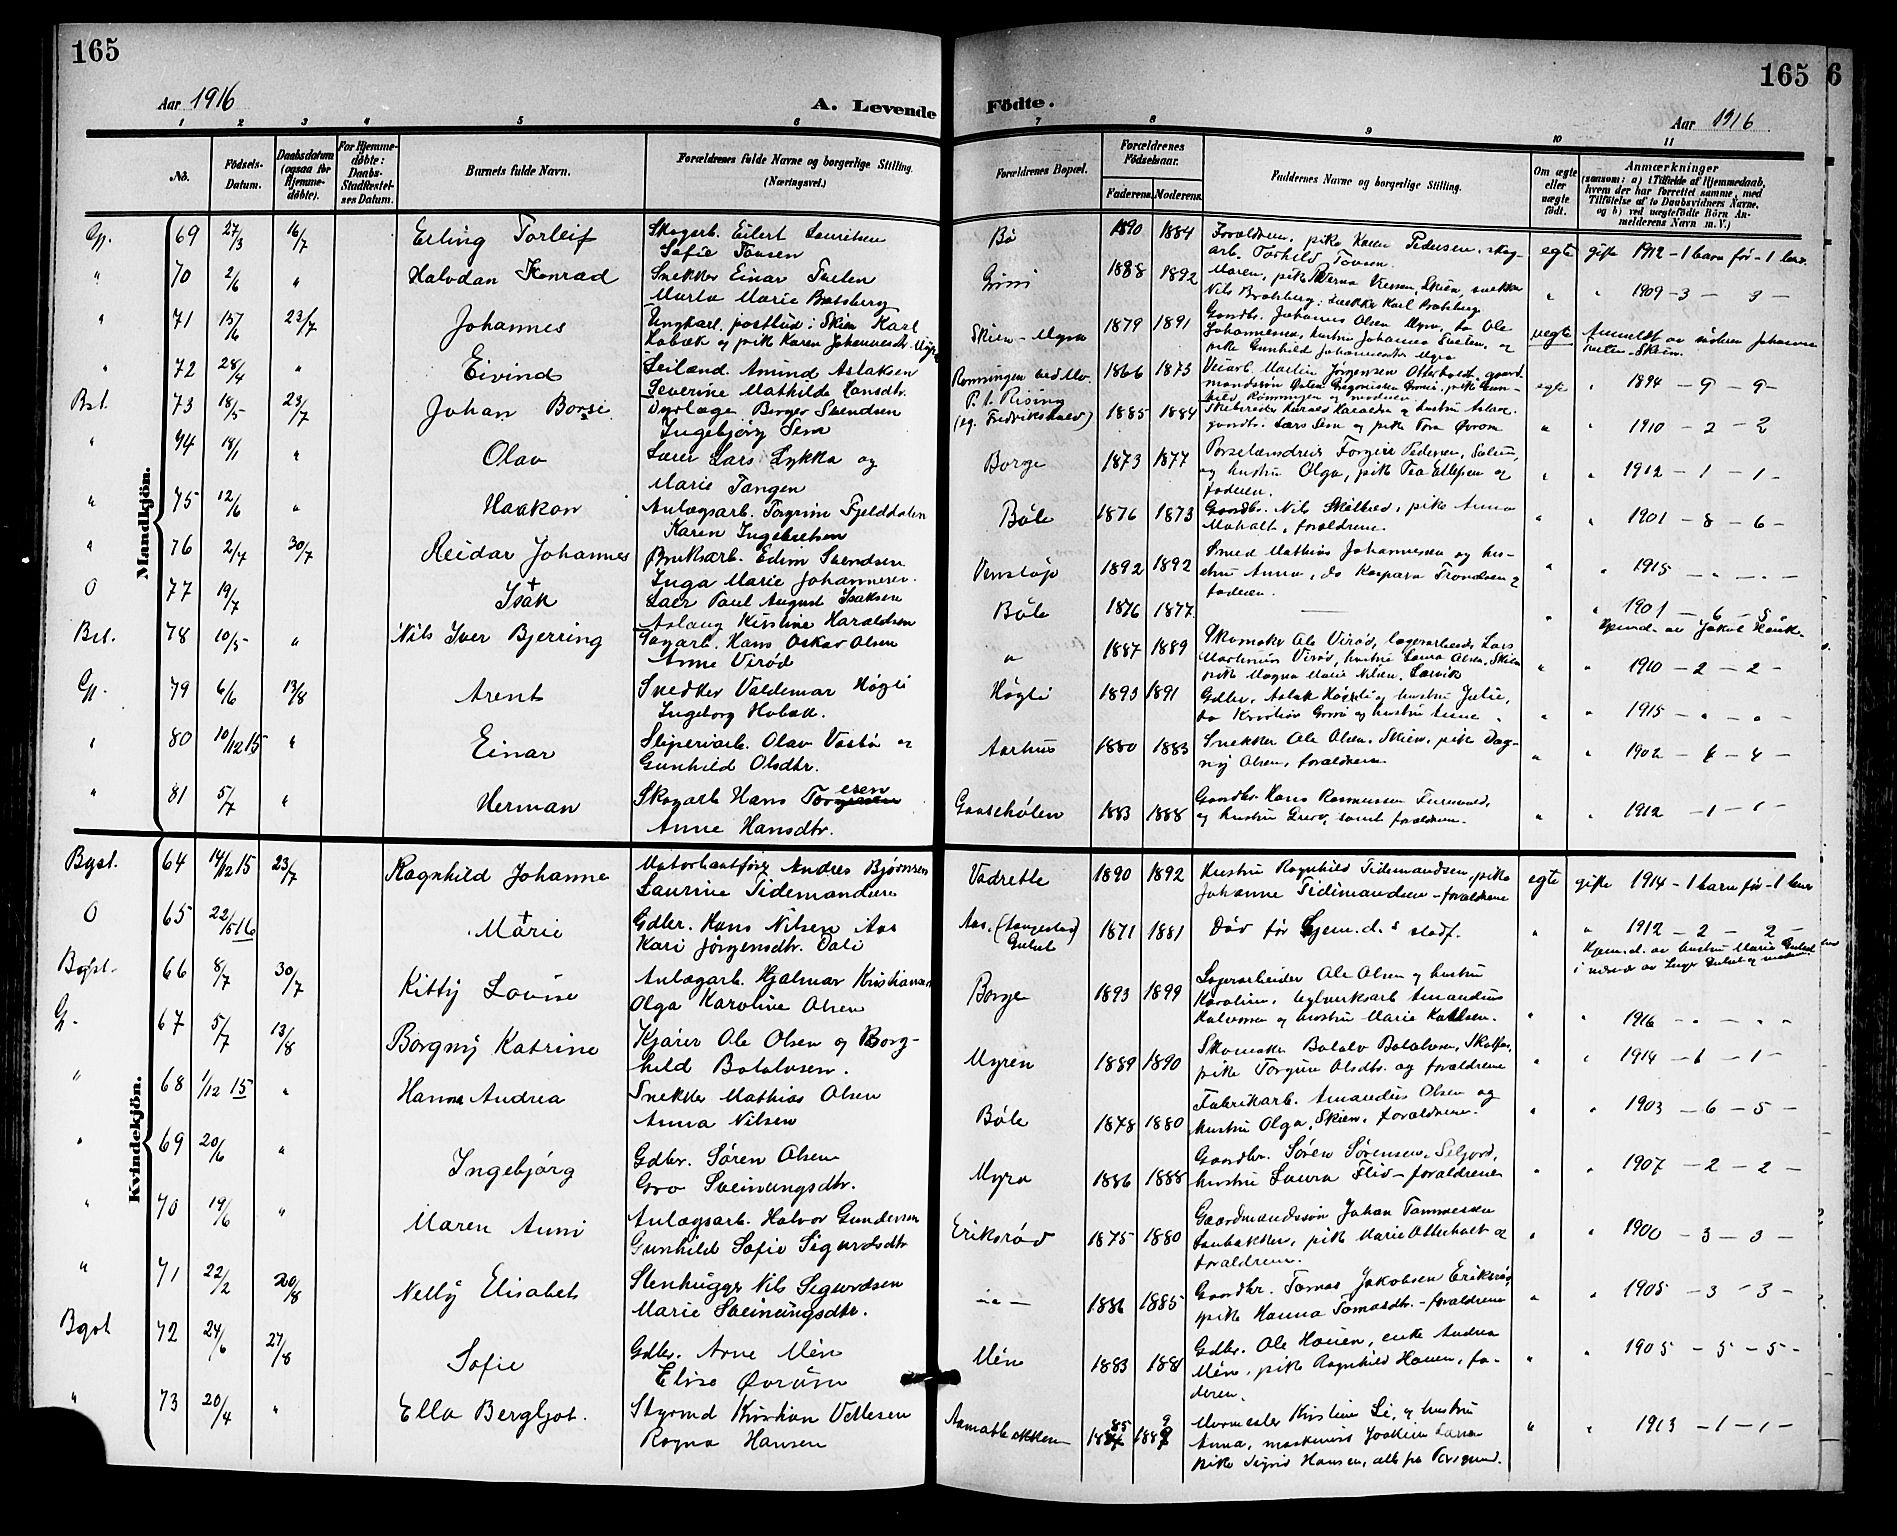 165
165 6
Aar 1916
A. Levende Fødte.
Aar 1916
1 2 3 4 5 6 7 8 9 10 11
No.
Fødsels-Datum.
Daabsdatum (ogsaa for Hjemme-døbte).
For Hjemme-døbte: Daabs-Stadfæstel-ses Datum.
Barnets fulde Navn.
Forældrenes fulde Navne og borgerlige Stilling. (Næringsvei.)
Forældrenes Bopæl.
Forældrenes Fødselsaar.
Faderens. Moderens.
Faddernes Navne og borgerlige Stilling.
Om ægte eller uægte født.
Anmærkninger
(saasom: a) i Tilfælde af Hjemmedaab,
hvem der har forrettet samme, med
Tilføielse af to Daabsvidners Navne,
og b) ved uægtefødte Børn An-
melderens Navn m. V.)
Mandkjön.
Gp. 69 27/3 16/7 Erling Torleif Skogarb. Eilert Lauritsen Bø 1890 1884 Forældrene, pike Karen Pedersen, skog- egte gift 1912 - 1 barn før - 1 lev.
Sofie Tovsen arb. Torkild Tovsen
" 70 2/6 " Halvdan Konrad Snekker Einar Tuften Grini 1888 1892 " " 1909 - 3 - 3 -
Marta Marie Bratsberg Nils Bratsberg, snekker Karl Bratsberg
" 71 15/6 23/7 Johannes Ungkarl, postbud i Skien Karl Skien - Myra 1879 1891 Gaardbr. Johannes Olsen Myra, uegte Anmeldt av moderen
Hobæk og pike Karen Johannesdtr. Myra
" 72 28/4 " Eivind Leilænd. Amund Aslaksen 1866 1873 Veiarb. Martin Jørgensen Otterholt, gaard- egte " 1894 - 9 - 9 -
Severine Mathilde Hansdtr.
Bst. 73 18/5 23/7 Johan Borse Dyrlæge Borger Svendsen P. t. Rising (eg. Fredrikshald) 1885 1884 " " 1910 - 2 - 2
Ingebjørg Sem gaardbr. Lars Sem og pike Tora Øvrom
" 94 18/1 " Olav Lærer Lars Lykka og Borge 1873 1877 " " 1912 - 1 - 1 -
Marie Tangen og hustru Olga, pike Tea Ellefsen og faderen.
" 75 12/6 " Haakon Anlægsarb. Torgrim Fjelddalen Bøle 1876 1873 Gaardbr. Nils Skilbred, pike Anna " " 1901 - 8 - 6 -
Karen Ingebretsen forældrene.
" 76 2/4 30/7 Reidar Johannes Bruksarb. Edvin Svendsen Venstøp 1892 1892 Smed Mathias Johannessen og hus- " " 1915 - " - " -
Inga Marie Johannesen tru Anna, do Kaspara Trondsen og faderen.
O 77 19/7 Isak Lærer Paul August Isaksen Bøle 1876 1877 — " " 1901 - 6 - 5
Aslaug Kirstine Haraldsen Hjemd. av Jakob Hauk-
Bst. 78 10/5 " Nils Iver Bjerring Sagarb. Hans Oskar Olsen " 1887 1889 Skomaker Ole Virød, lagerarbeider Lars " " 1910 - 2 - 2 -
Anne Virød Martinius Virød, hustru Laura Olsen, Skien
pike Magna Marie Nilsen, Larvik
Gp. 79 6/6 13/8 Arent Snedker Valdemar Høgli Høgli 1893 1891 Gdbr. Aslak Høgli og hustru Julie, " " 1915 - " - " -
Ingeborg Hobæk. do Kristian Grini og hustru Anne
" 80 10/12 15 " Einar Sliperiarb. Olav Vasbø og Aarhus 1880 1883 Snekker Ole Olsen, Skien, pike Dag- " " 1902 - 4 - 4 -
Gunhild Olsdtr. ny Olsen, forældrene
" 81 5/7 " Herman Skogarb Hans Torgersen esen Gaasehølen 1883 1888 Gaardbr. Hans Rasmussen " " 1912 - 1 - 1 -
Anne Hansdtr. og hustru samt forældrene.
Kvindekjön.
Bgst. 64 14/12 15 23/7 Ragnhild Johanne Andres Bjørnsen Vadrette 1890 1892 Hustru Ragnhild Tidemandsen, pike egte gift 1914 - 1 barn før - 1 lev
Laurine Tidemandsen Johanne Tidemandsen - forældrene
O 65 22/5 16 Marie Gdbr. Hans Nilsen Aas Aas. (Langestad) Gulset 1871 1881 Død før hjem.d.s stadf. " " 1912 - 2 - 2 -
Kari Jørgensdtr. Dale Hjem.d. av hustru Marie Gulset
Bgst. 66 8/7 30/7 Kitty Lovise Anlægarb. Hjalmar Kristiansen Borge 1893 1899 Lagerarbeider Ole Olsen og hustru " " 1916 - " - " "
Olga Karoline Olsen Karoline, teglverksarb Amandus
Halvorsen og hustru Marie Karlsen.
G. 67 5/7 13/8 Borgny Katrine Kjører Ole Olsen og Borg- Myren 1889 1890 Skomaker Botolv Botolvsen, " " 1914 - 6 - 1 -
hild Botolvsen. pike Torgine Olsdtr. og forældrene
" 68 1/12 15 " Hanna Andrea Snekker Mathias Olsen Bøle 1878 1880 Fabrikarb. Amandus Olsen og " " 1903 - 6 - 5 -
Anna Nilsen hustru Olga, Skien, forældrene.
" 69 20/6 " Ingebjørg Gdbr. Søren Olsen Myra 1886 1888 Gaardbr. Søren Sørensen, Seljord, " " 1907 - 2 - 2 -
Gro Sveinungsdtr. hustru Laura Flid - forældrene
" 70 19/6 " Maren Anni Anlægsarb. Halvor Gundersen Eriksrød 1875 1880 Gaardmandssøn Johan Tommessen " " 1900 - 3 - 3 -
Gunhild Sofie Sigurdsdtr pike Marie Otterholt og forældrene.
" 71 22/2 20/8 Nelly Elisabet Stenhugger Nils Sigurdsen — " — 1886 1885 Gaardbr. Tomas Jakobsen Eriksrød " " 1905 - 3 - 3 -
Marie Sveinungsdtr. pike Hanna Tomasdtr. - forældrene
Bgst 72 24/6 27/8 Sofie Gdbr. Arne Mén Mén 1883 1881 Gdbr. Ole Hauen, enke Andrea " " 1905 - 5 - 5 -
Elise Øvrum Mén, pike Ragnhild Hauen, fa-
deren.
" 73 20/4 " Ella Bergljot. Styrmd Kristian Vettesen 1885 1889 Murmester Kristian Li, og hustru " " 1913 - 1 - 1 -
Ragna Hansen Anna, maskinist Joakim Larsen
pike Sigrid Hansen, alle fra Porsgrund.